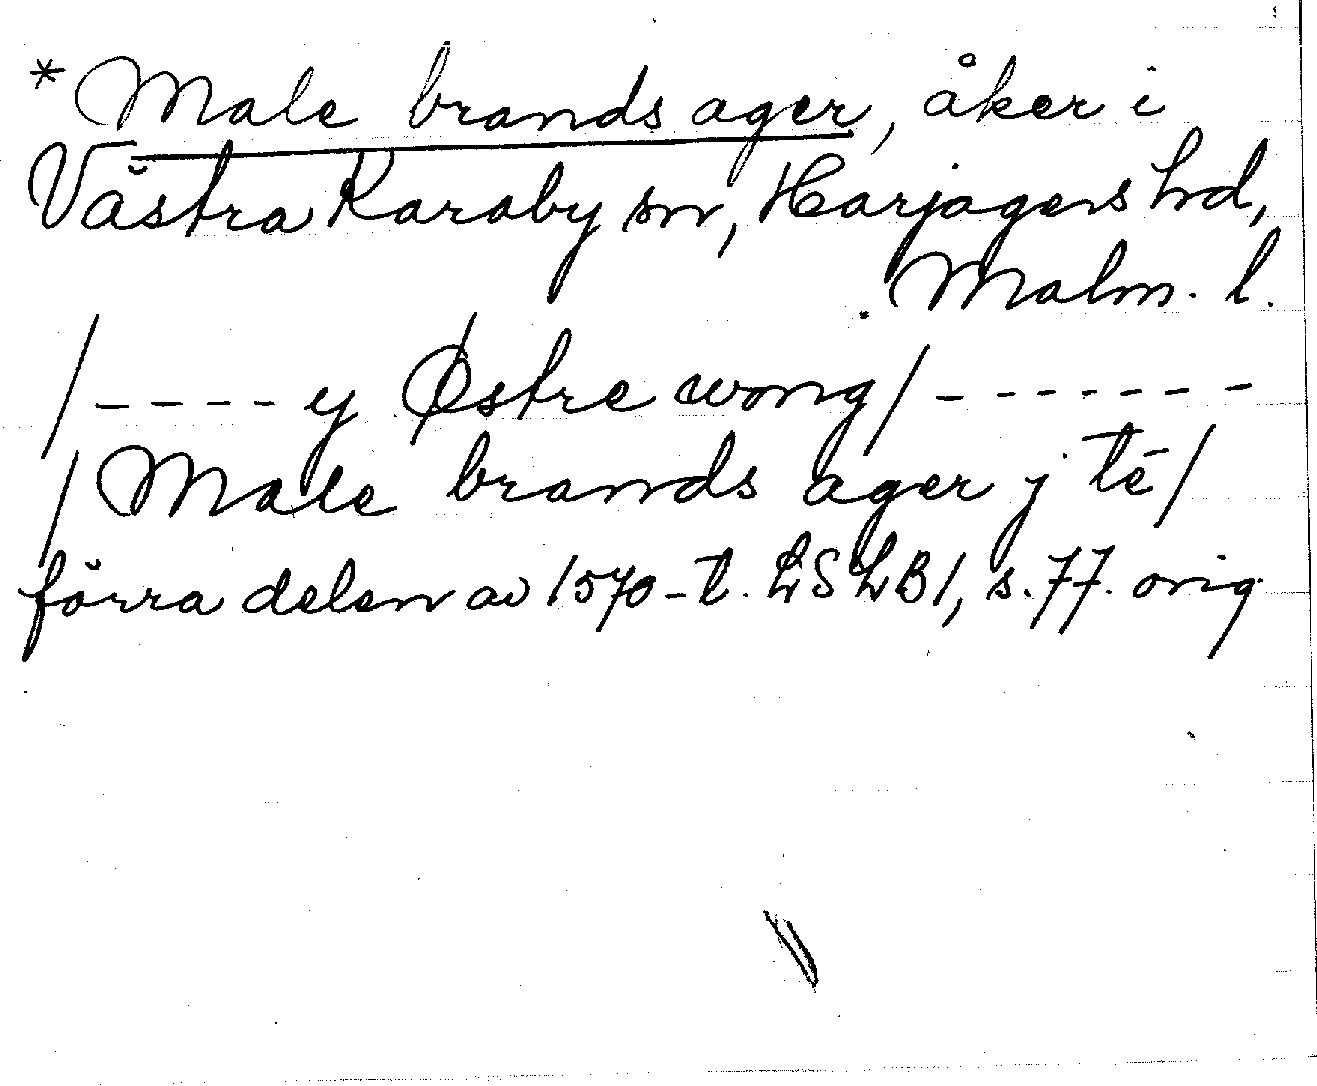 *Male brands ager, åker i
Västra Karaby sn, Harjagers hd,
Malm. l.
/ - - - - y Østre wong / - - - - - - -
/ Male brands ager j tē /
förra delen av 1570-t. LSLB1, s. 77. orig.